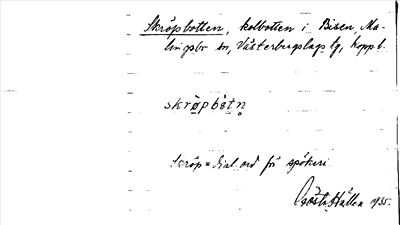 Skröpbotten, kolbotten i Bisen, Ma-
lingsbo sn, Västerbergslags tg, Koppb.
skrøpbòtn̥
Skröp = dial. ord för spökeri
Gösta Hallén 1935.